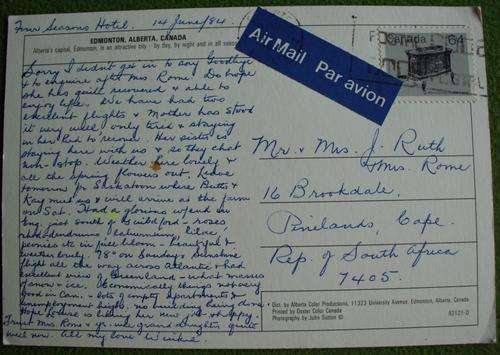 Four Seasons Hotel. 14 June/84
EDMONTON, ALBERTA, CANADA
Alberta's capital, Edmonton, is an attractive city - by day, by night and in all seas
Sorry I didn't get in to say Goodbye
& to enquire after Mrs Rome. Do hope
she has quite recovered & able to
enjoy life. We have had two
excellent flights & Mother has stood
it very well only tired & staying
in her bed to recoup. Her sister is
staying here with us & so they chat
non-stop. Weather here lovely &
all the spring flowers out. Leave
tomorrow for Saskatoon where &
Kay meet us & will arrive at the farm
on Sat. Had a glorious w/end in
just south of Guildford - roses
rhododendrums laburnum, lilac,
peonies etc in full bloom - beautiful &
weather lovely. 78° on Sunday & Sunshine
flight all the way across Atlantic & had
excellent view of Greenland - what masses
of snow & ice. Economically things not very
good in Can. - lots of empty apartments &
unemployment high. No building being done.
Hope Louise is liking her new job & happy.
Trust Mrs Rome & gr. grand daughter quite
well now. All my love
Air Mail Par avion
Canada 64
Mr. & Mrs. J. Ruth
& Mrs. Rome
16 Brookdale,
Pinelands, Cape.
Rep. of South Africa
7405.
Dist. by Alberta Color Productions, 11323 University Avenue, Edmonton, Alberta, Canada
Printed by Dexter Color Canada
Photography by John Sutton ©
83121-D